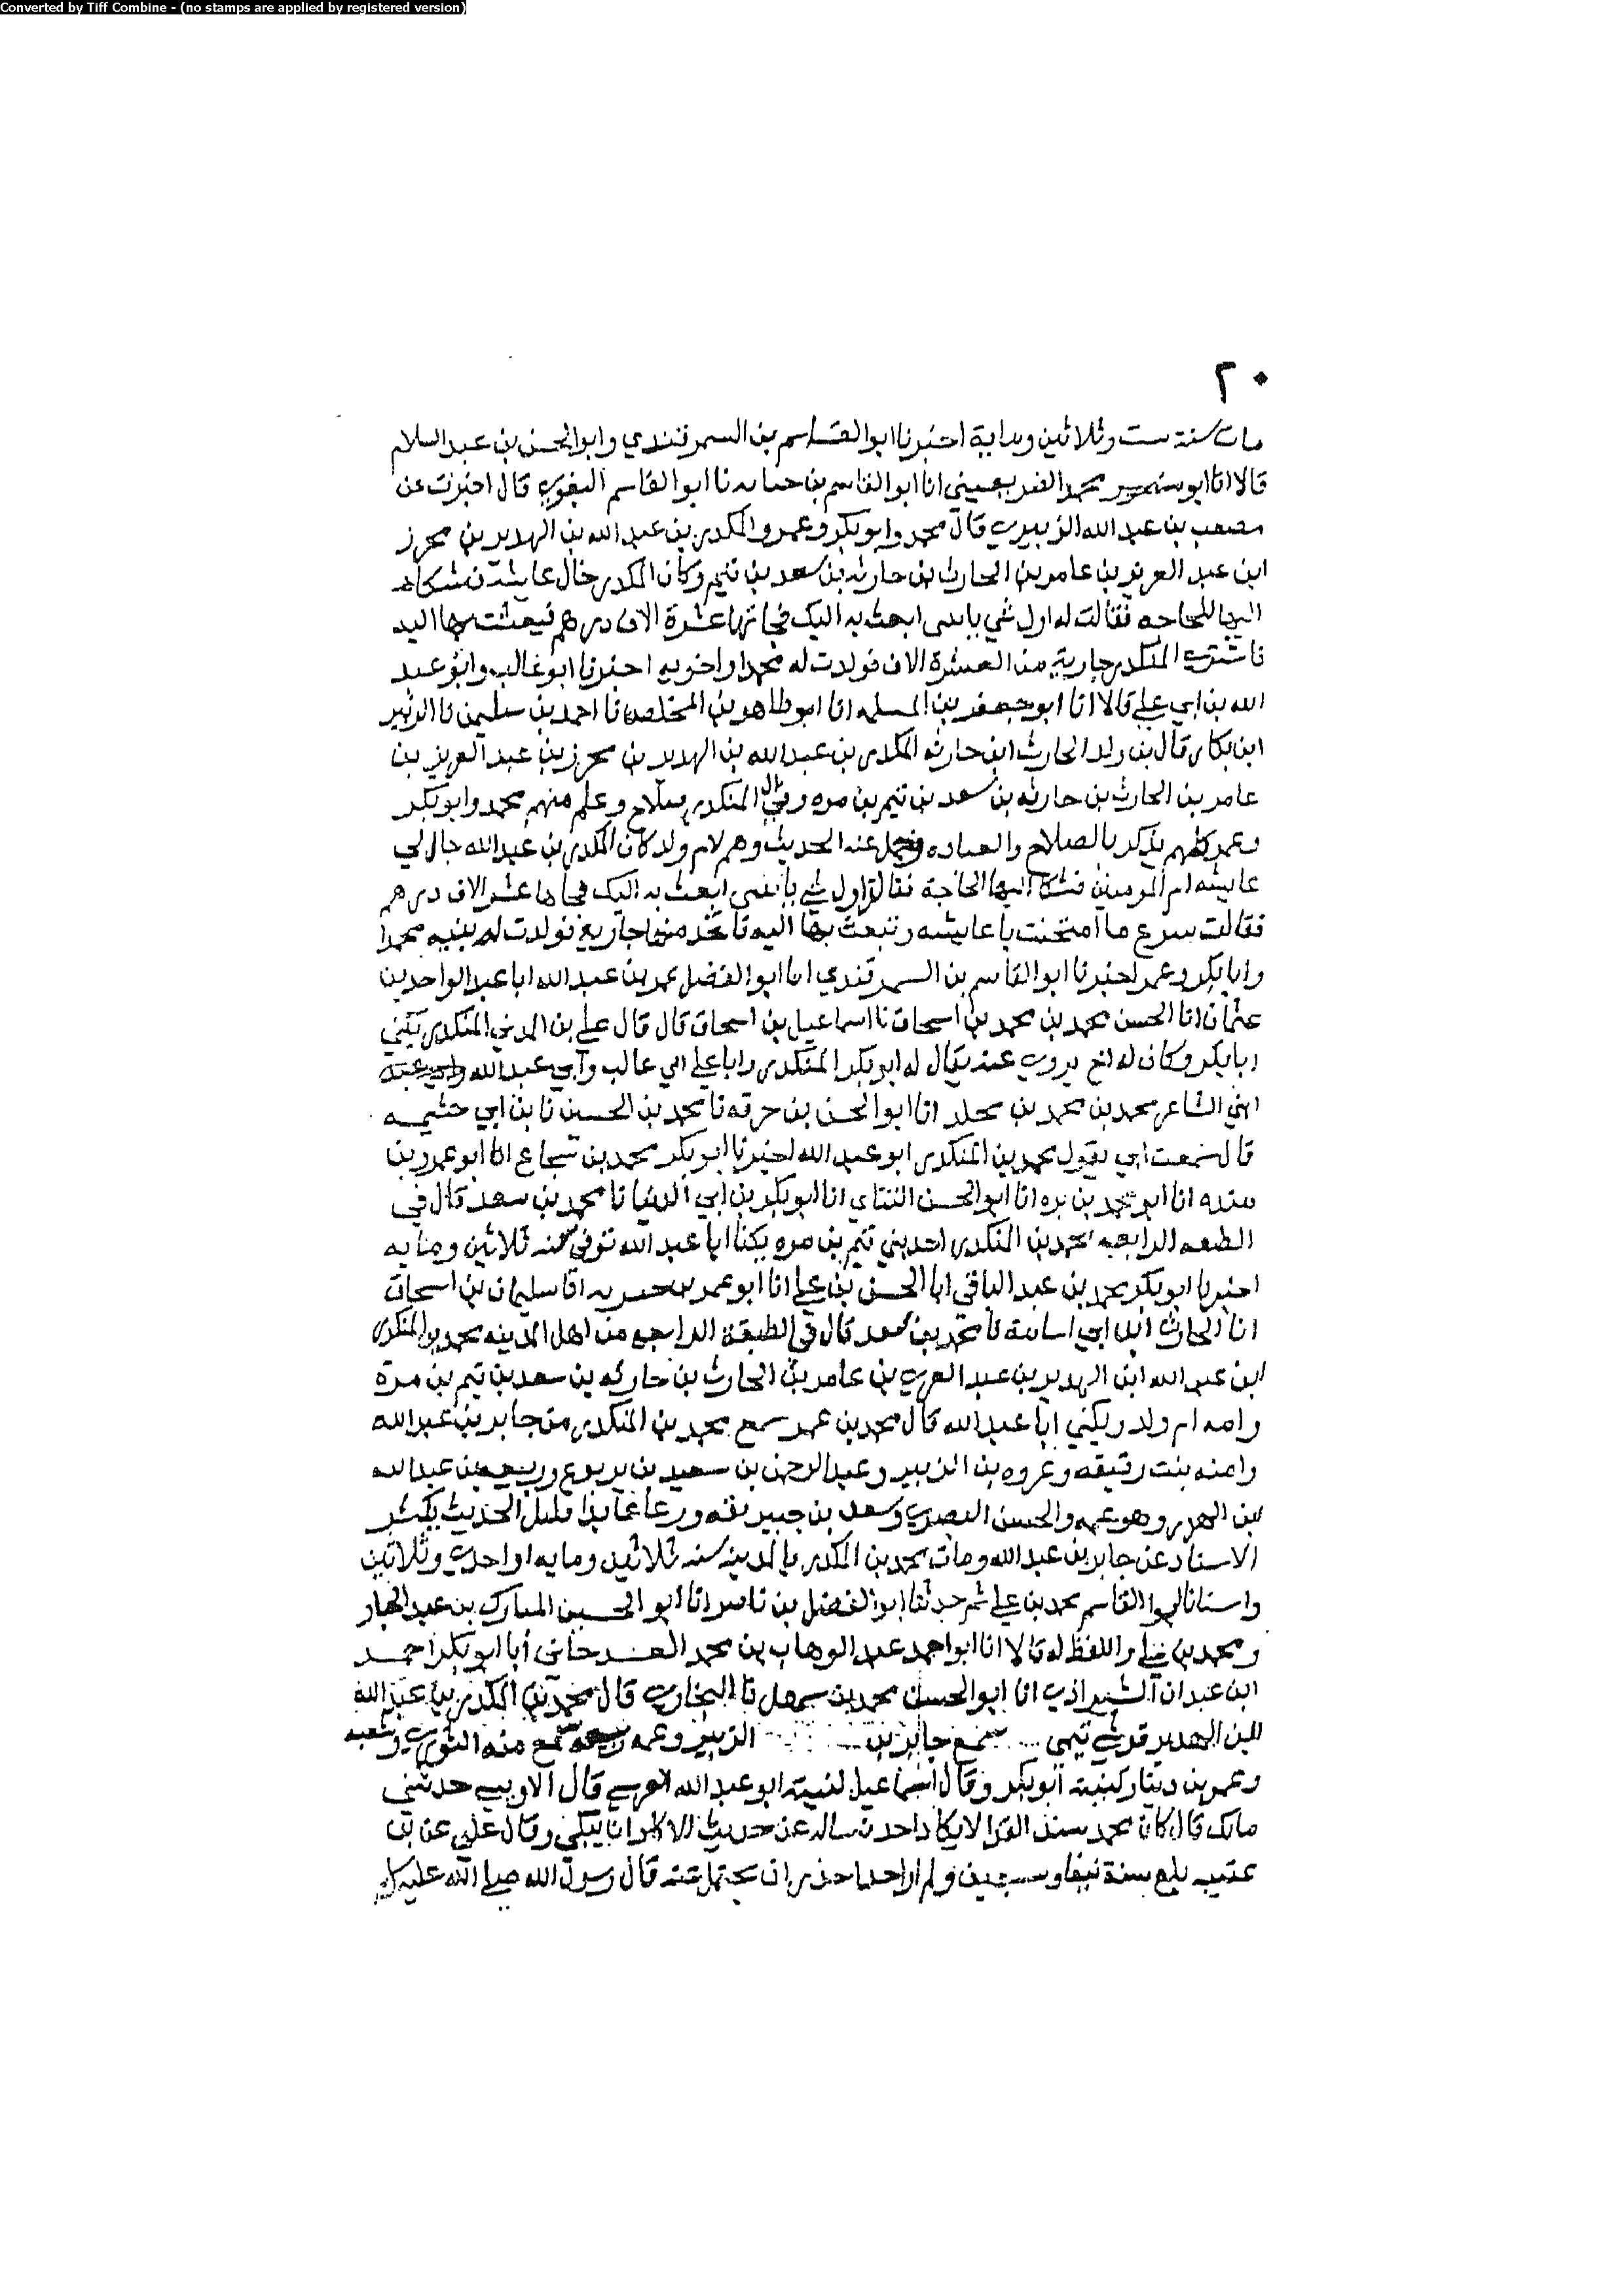 Converted by Tiff Combine - (no stamps are applied by registered version)
٢٠
مات سنة ست وثلاثين وماية اخبرنا ابو القاسم بن السمرقندي وابو الحسن بن عبد السلام
قالا انا ابو محمد الصريفيني انا ابو القاسم بن حبابه نا ابو القاسم البغوي قال اخبرت عن
مصعب بن عبد الله الزبيري قال محمد وابو بكر وعمر والمكدر بن عبد الله بن الهدير بن محرز
ابن عبد العزيز بن عامر بن الحارث بن حارثه بن سعد بن تيم وكان المكدر خال عايشة فشكا
اليها الحاجه فقالت له اول شي ياتيني ابعث به اليك فجاتها عشرة الاف درهم فبعثت بها اليه
فاشترى المنكدر جارية من العشرة الاف فولدت له محمدا واخويه اخبرنا ابو غالب وابو عبد
الله بن ابي علي قالا انا ابو جعفر بن المسلمه انا ابو طاهر بن المخلص نا احمد بن سليمن نا الزبير
ابن بكار قال بن ولد الحارث ابن حارثه المكدر بن عبد الله بن الهدير بن محرز بن عبد العزيز بن
عامر بن الحارث بن حارثه بن سعد بن تيم بن مره وفي ال المنكدر صلاح وعلم منهم محمد وابو بكر
وعمر كلهم يذكر بالصلاح والعباده ويحمل عنه الحديث وهم لام ولد كان المكدر بن عبد الله جال الي
عايشه ام المومنين فشكا اليها الحاجة فقالت اول شي ياتيني ابعث به اليك فجاها عشر الاف درهم
فقالت سرع ما امتحنت يا عايشه وتبعث بها اليه فاتخذ منها جارية فولدت له بنيه محمدا
وابا بكر وعمر اخبرنا ابو القاسم بن السمرقندي انا ابو الفضل عمر بن عبد الله انا عبد الواحد بن
عثمان انا الحسن محمد بن محمد بن اسحاق نا اسماعيل بن اسحاق قال قال علي بن المدني المنكدر يكني
ابا بكر وكان له اخ يروي عنه يقال له ابو بكر المنكدر وابا علي ابي غالب وابي عبد الله
ابني الشاعر محمد بن محمد بن مخلد انا ابو الحسن بن خزفه نا محمد بن الحسين نا بن ابي خثيمه
قال سمعت ابي يقول محمد بن المنكدر ابو عبد الله اخبرنا ابو بكر محمد بن شجاع انا ابو عمرو بن
منده انا ابو محمد بن يوه انا ابو الحسن اللنباني انا ابو بكر بن ابي الدنيا نا محمد بن سعد قال في
الطبقه الرابعه محمد بن المنكدر احد بني تيم بن مره يكنا ابا عبد الله توفي سنه ثلاثين ومايه
اخبرنا ابو بكر محمد بن عبد الباقي انا الحسن بن علي انا ابو عمر بن حيويه انا سليمان بن اسحاق
انا الحارث ابن ابي اسامة نا محمد بن سعد قال في الطبقة الرابعه من اهل المدينه محمد بن المنكدر
ابن عبد الله ابن الهدير بن عبد العزي بن عامر بن الحارث بن حارثه بن سعد بن تيم بن مرة
وامه ام ولد ويكني ابا عبد الله قال محمد بن عمر سمع محمد بن المنكدر من جابر بن عبد الله
وامنه بنت رقيقه وعروه بن الزبير وعبد الرحمن بن سعيد بن يربوع وربيعه بن عبد الله
بن الهدير وهو عمه والحسن البصري وسعد بن جبير ثقه ورعا عابدا قليل الحديث يكثر
الاسناد عن جابر بن عبد الله ومات محمد بن المكدر بالمدينه سنه ثلاثين ومايه او احدى وثلاثين
وانبانا ابو القاسم محمد بن علي ثم حدثنا ابو الفضل بن ناصر انا ابو الحسين المبارك بن عبد الجبار
ومحمد بن علي واللفظ له قالا انا ابو احمد عبد الوهاب بن محمد الغندجاني أبا ابو بكر احمد
ابن عبدان الشيرازي انا ابو الحسن محمد بن سهل نا البخاري قال محمد بن المكدر بن عبد الله
بن الهدير قرشي تيمي ... سمع جابر بن ... الزبير وعمه ربيعه سمع منه الثوري وشعبه
وعمرو بن دينار كنيته ابو بكر وقال اسماعيل كنيته ابو عبد الله قال الاويسي حدثني
مالك قال كان محمد سيد القرا لا يكاد احد يساله عن حديث الا كان يبكي وقال علي عن بن
عتيبه بلغ سنة نيفا وسبعين ولم ار احدا اجذر ان يحتمل عنه قال رسول الله صلى الله عليه